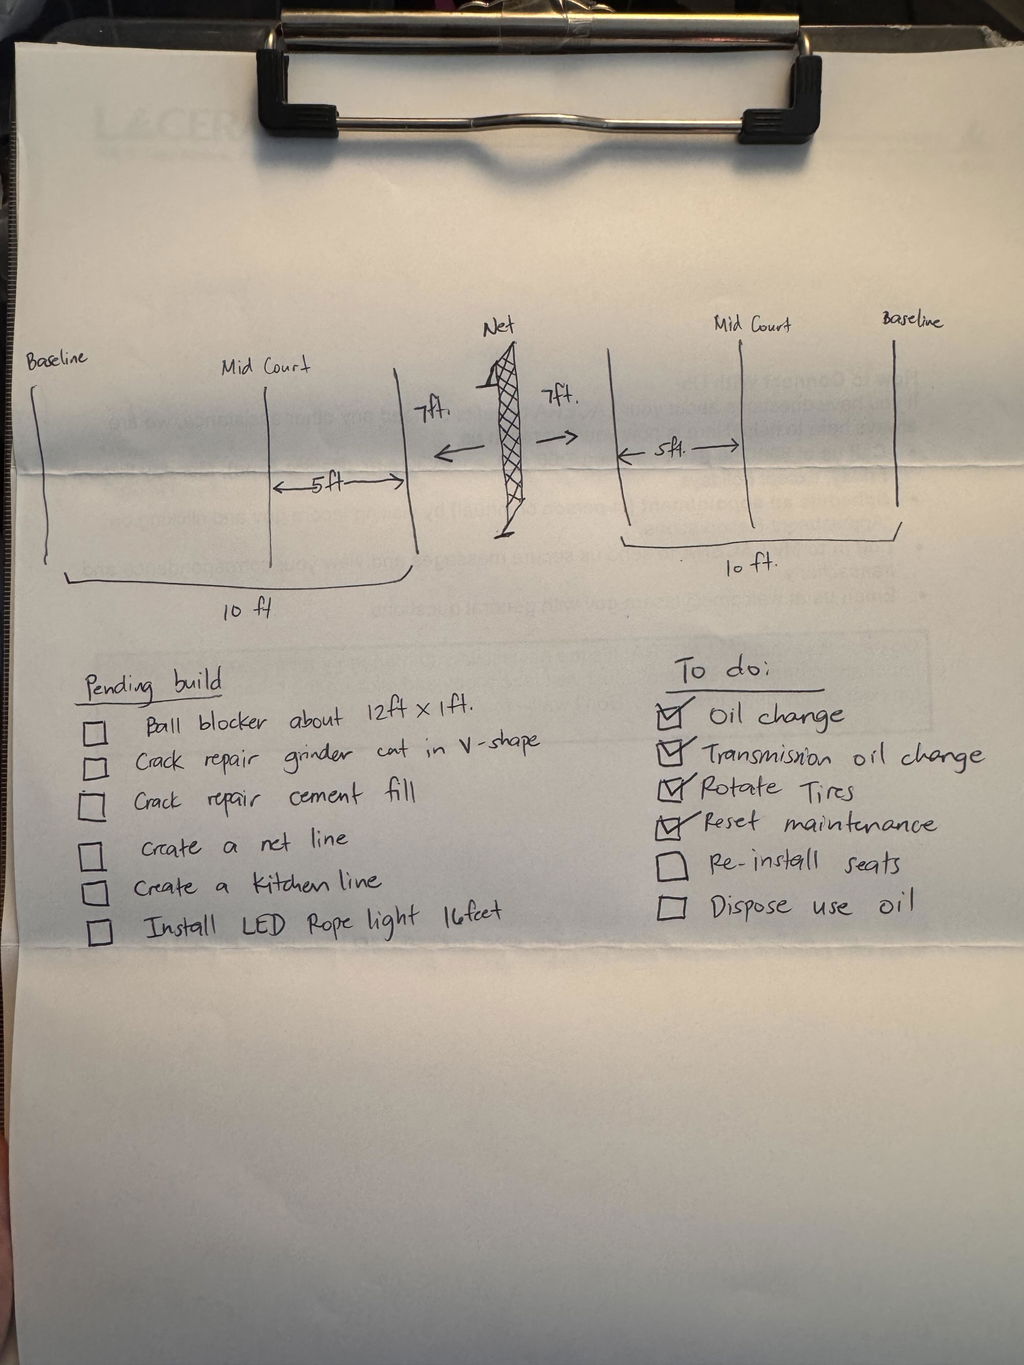 LACERA
Net
Mid Court
Baseline
Baseline
Mid Court
7ft.
7ft.
5ft.
5ft
10 ft.
10 ft
Pending build
Ball blocker about 12ft x 1ft.
Crack repair grinder cut in V-shape
Crack repair cement fill
Create a net line
Create a Kitchen line
Install LED Rope light 16feet
To do:
Oil change
Transmission oil change
Rotate Tires
Reset maintenance
Re-install seats
Dispose use oil